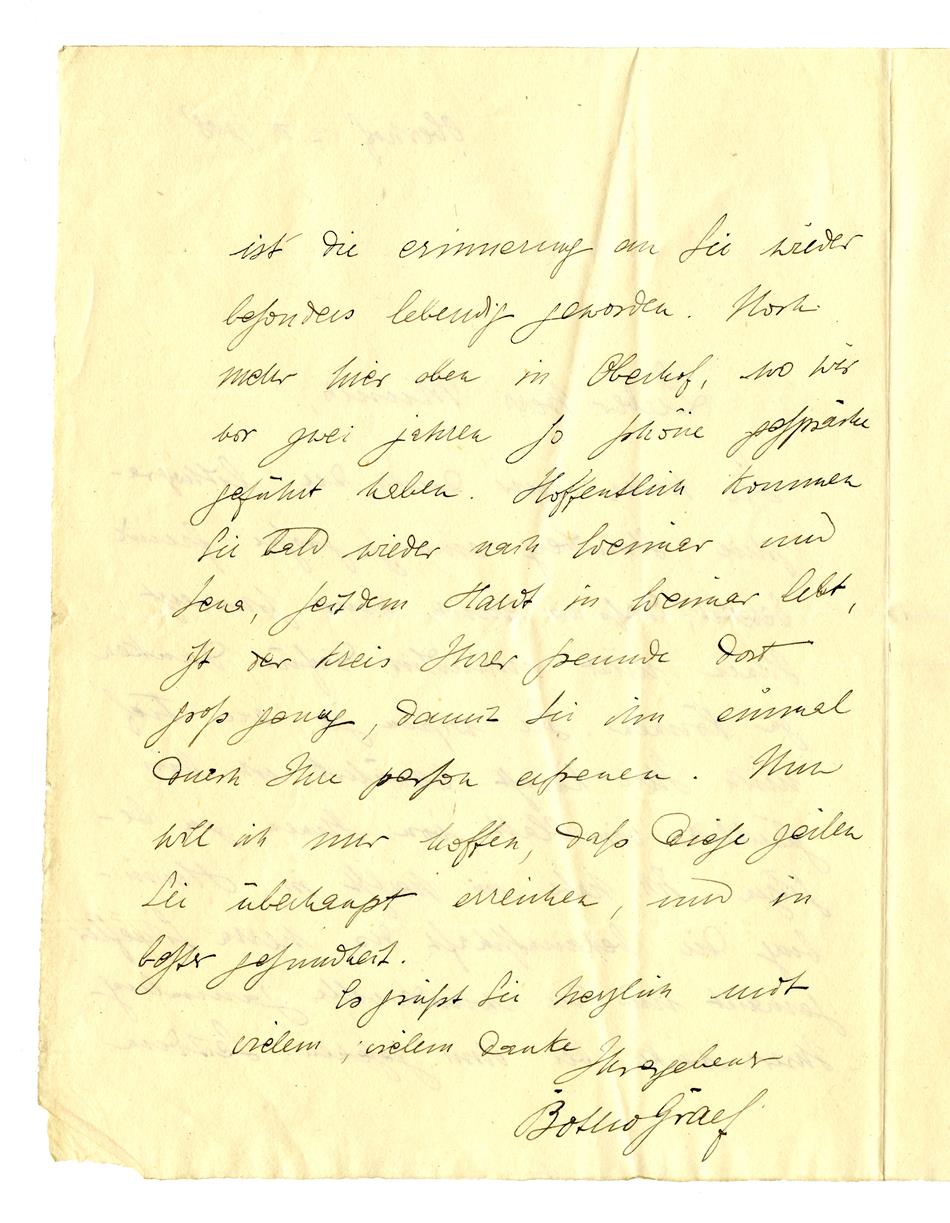 ist die erinnerung an Sie wieder
besonders lebendig geworden. Noch
mehr hier oben in Oberhof, wo wir
vor zwei jahren so schöne gespräche
geführt haben. Hoffentlich kommen
Sie bald wieder nach Weimar und
Jena, seitdem Hardt in Weimar lebt,
ist der kreis Ihrer freunde dort
groß genug, damit Sie ihn einmal
durch Ihre person erfreuen. Nun
will ich nur hoffen, daß diese zeilen
Sie überhaupt erreichen, und in
bester gesundheit.
Es grüßt Sie herzlich mit
vielem, vielem danke
Ihr ergebener
Botho Graef